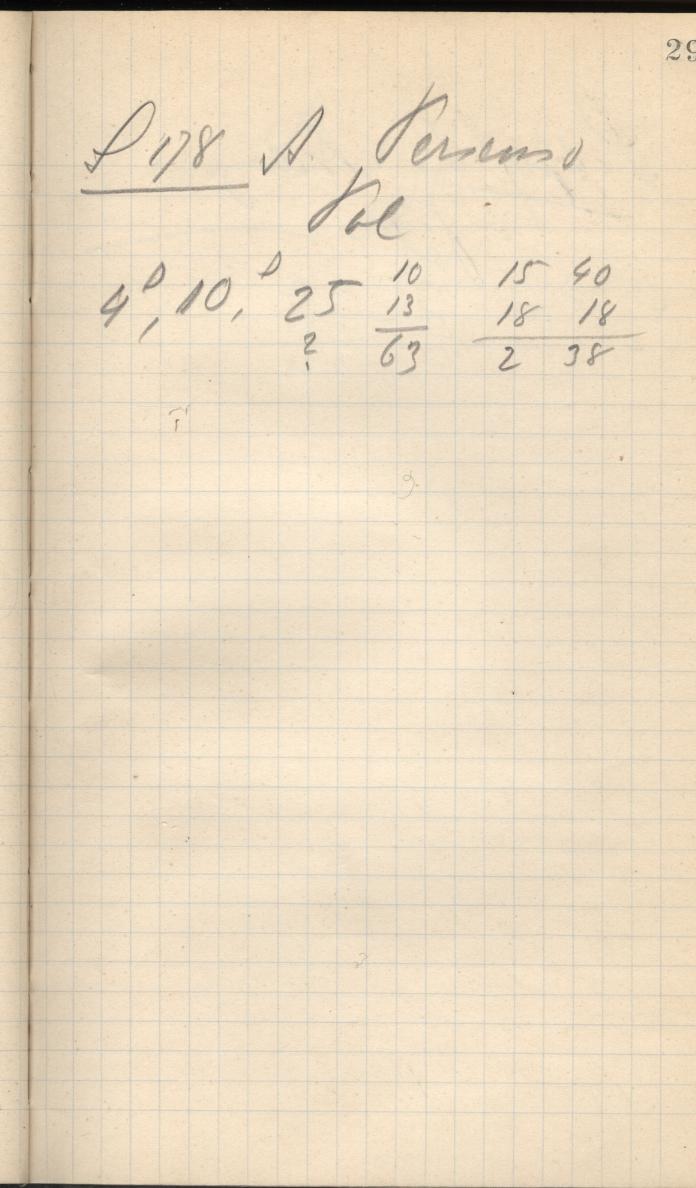 29
P 178 A.
Vol
4D, 10, D 25 10 15 40
13 18 18
? 63 2 38